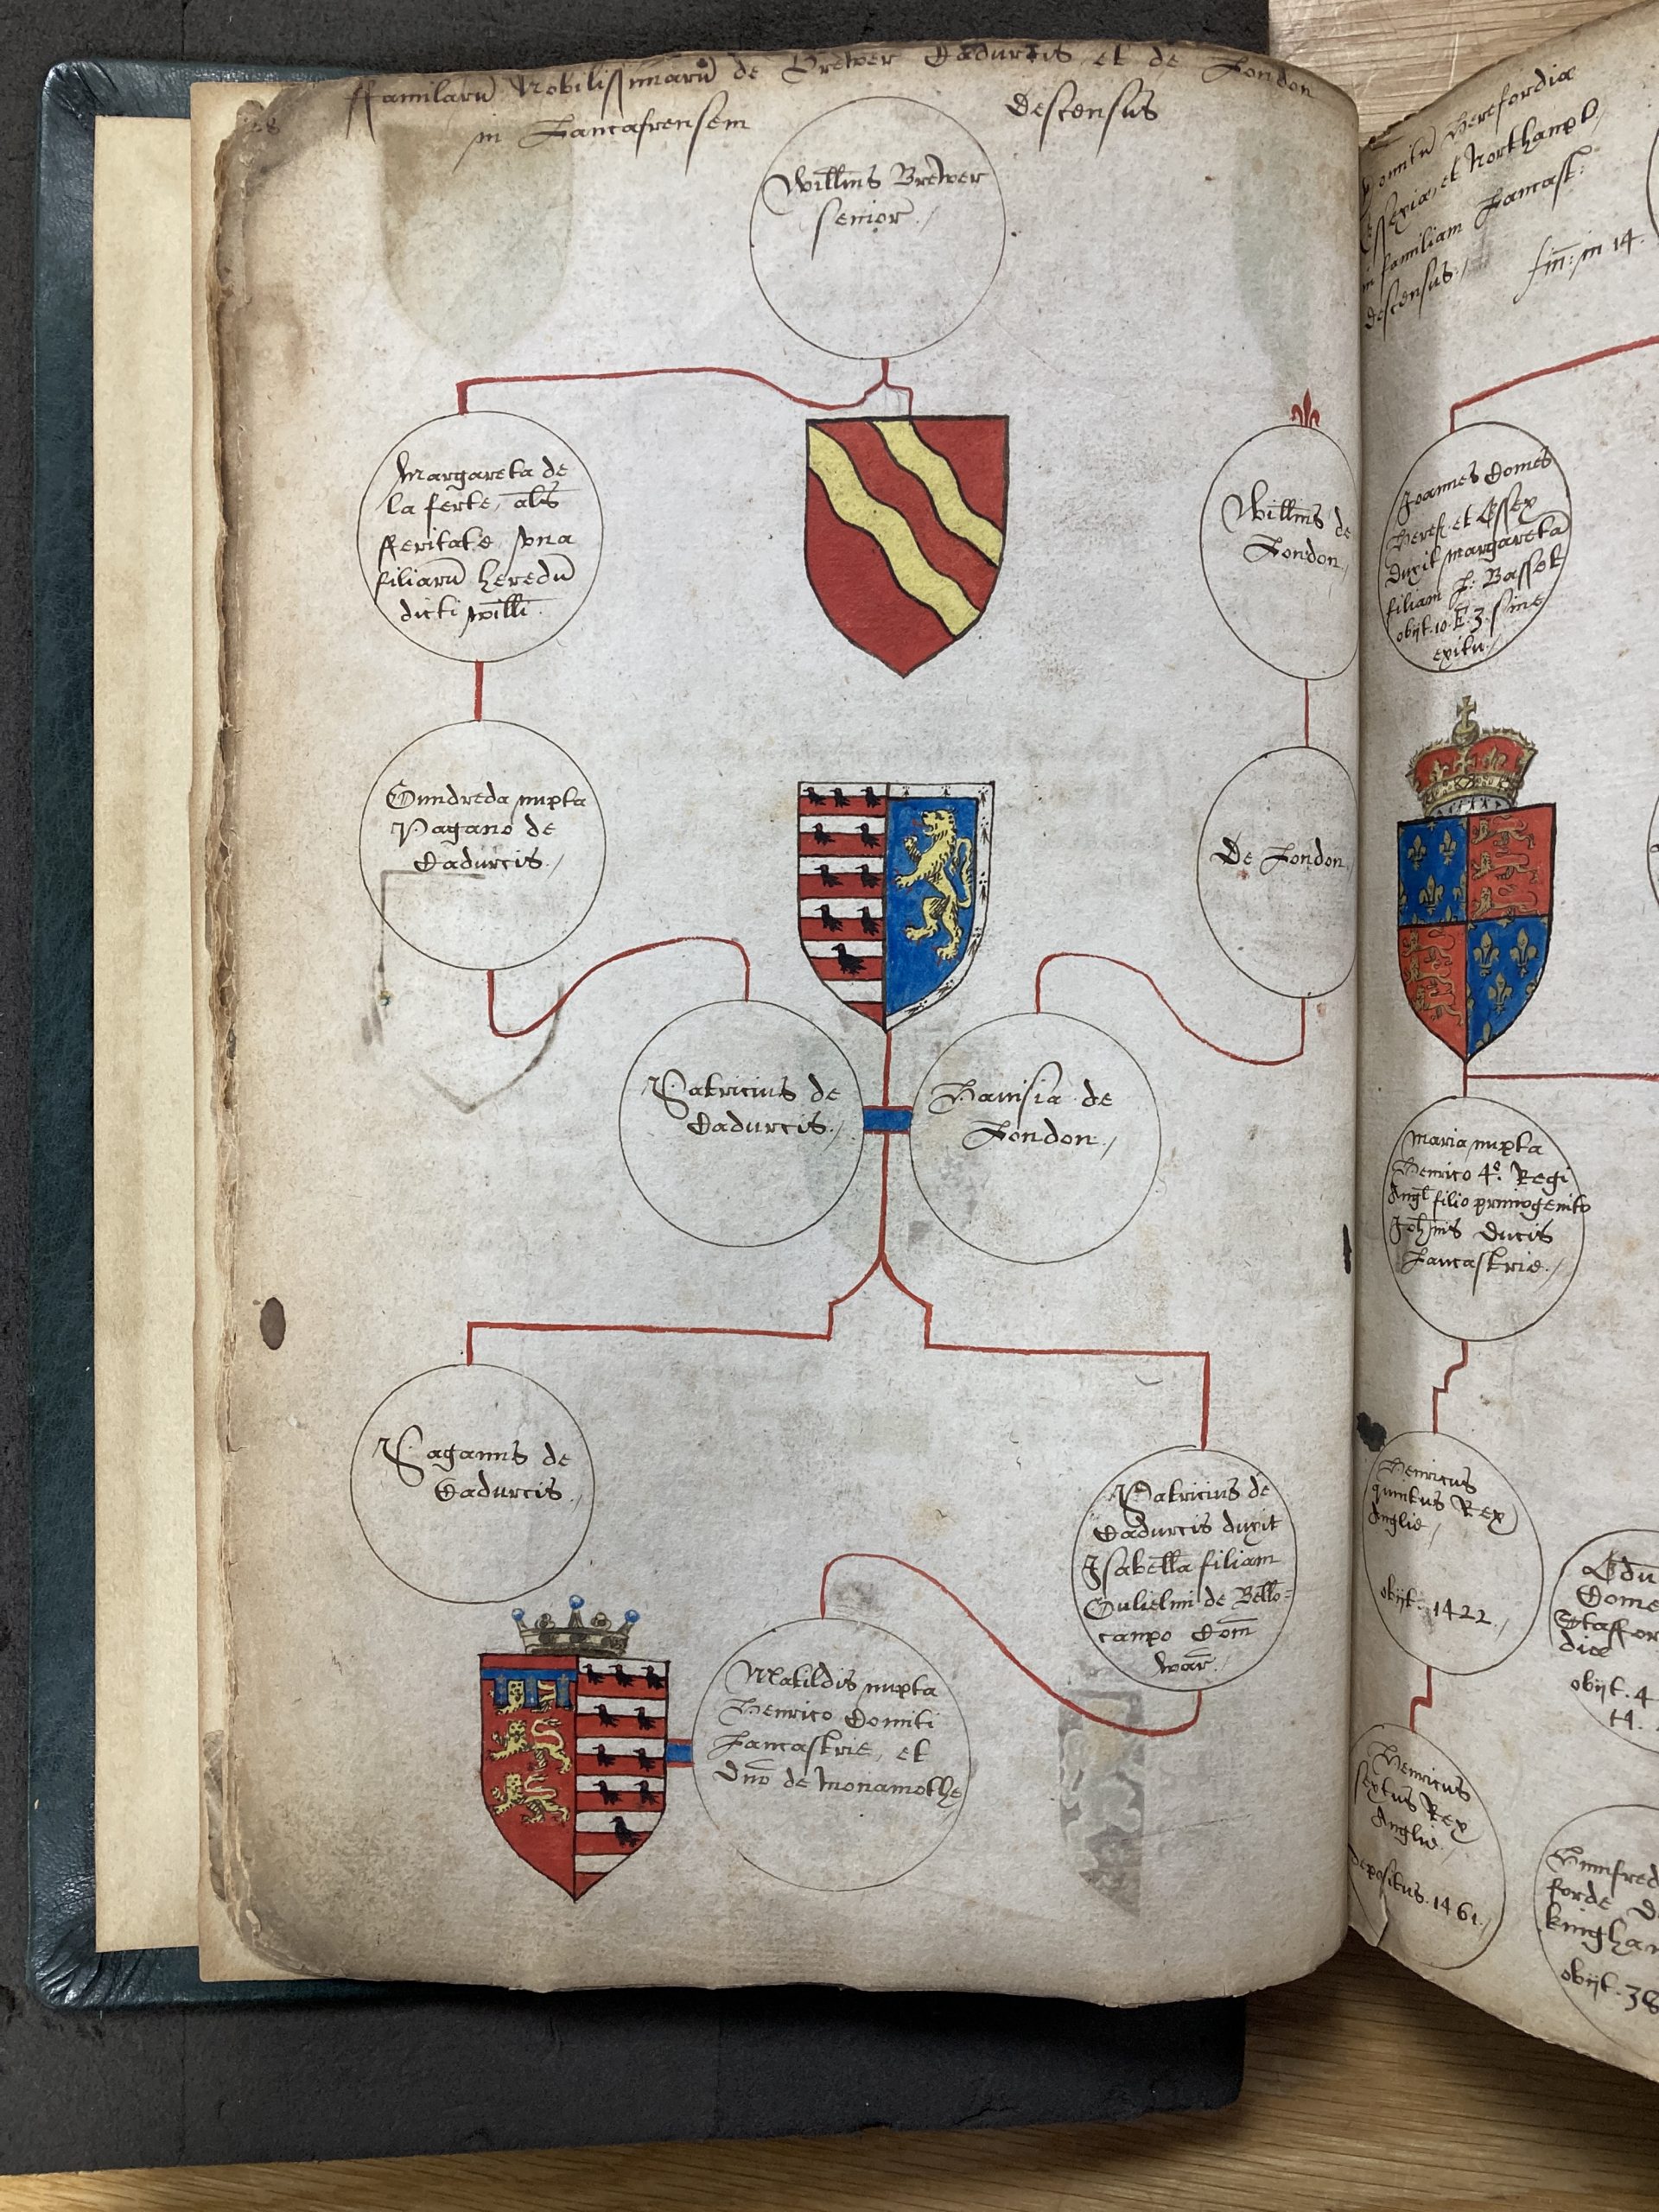 ffamilarū Nobilissimarū de Brewer Cadurcis, et de London
in Lancastrensem descensus
28
Willms Brewer
senior ./
Margareta de
la ferte, als
fferitate vna
filiarū heredū
dicti willi.
Willms de
London,
Gundreda nupta
Pagano de
Cadurcis ./
De London,
Patricius de
Cadurcis ./
Hauisia de
London ./
Paganus de
Cadurcis ./
Patricius de
Cadurcis duxit
Isabella filiam
Gulielmi de Bello=
campo Com
war.
Matildis nupta
Henrico Comiti
Lancastrie, et
Dno de Monamothe
Comitū Herefordiæ
Essexiæ, et Northampt,
in familiam Lancast:
descensus ./
fin: in 14.
Joannes Comes
Heref. et Essex
duxit margaretā
filiam R: Basset
obijt. 10. E. 3. sine
exitu ./
Maria nupta
Henrico 4º. Regi
Angl filio primogenito
Johnis Ducis
Lancastrie ./
Henricus
quintus Rex
Anglie /
obijt. 1422 ./
Henricus
sextus Rex
Anglie
depositus. 1461 ./
Edu
Come
Staffor
diæ
obijt. 4
H.
Humfred
forde D
kingha
obijt. 38